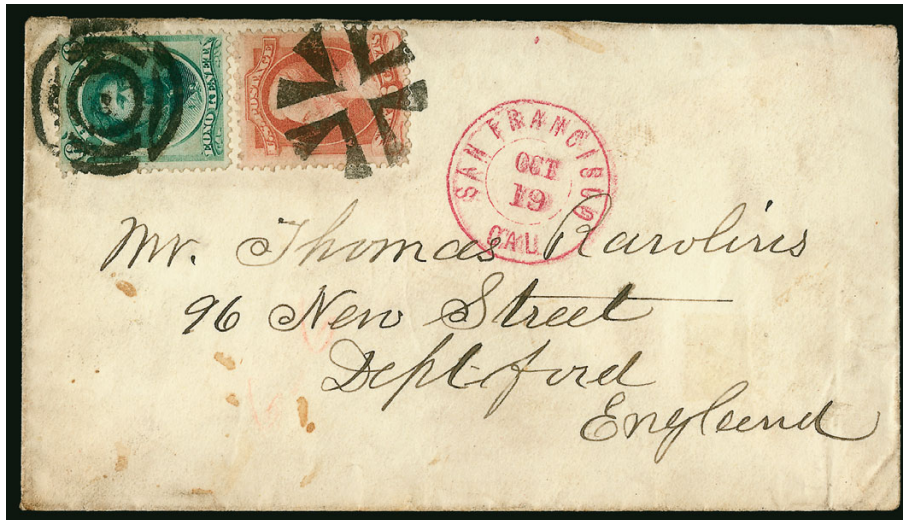 U.S. POSTAGE
SAN FRANCISCO
OCT
19
CAL.
Mr. Thomas Rawlins
96 New Street
Deptford
England